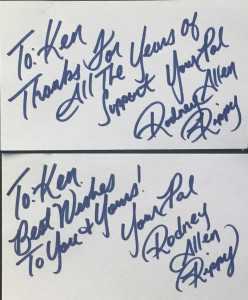 To: Ken
Thanks For
All The Years of
Support Your Pal
Rodney Allen
Rippy
To: Ken
Best Wishes
To You & Yours!
Your Pal
Rodney
Allen
Rippy